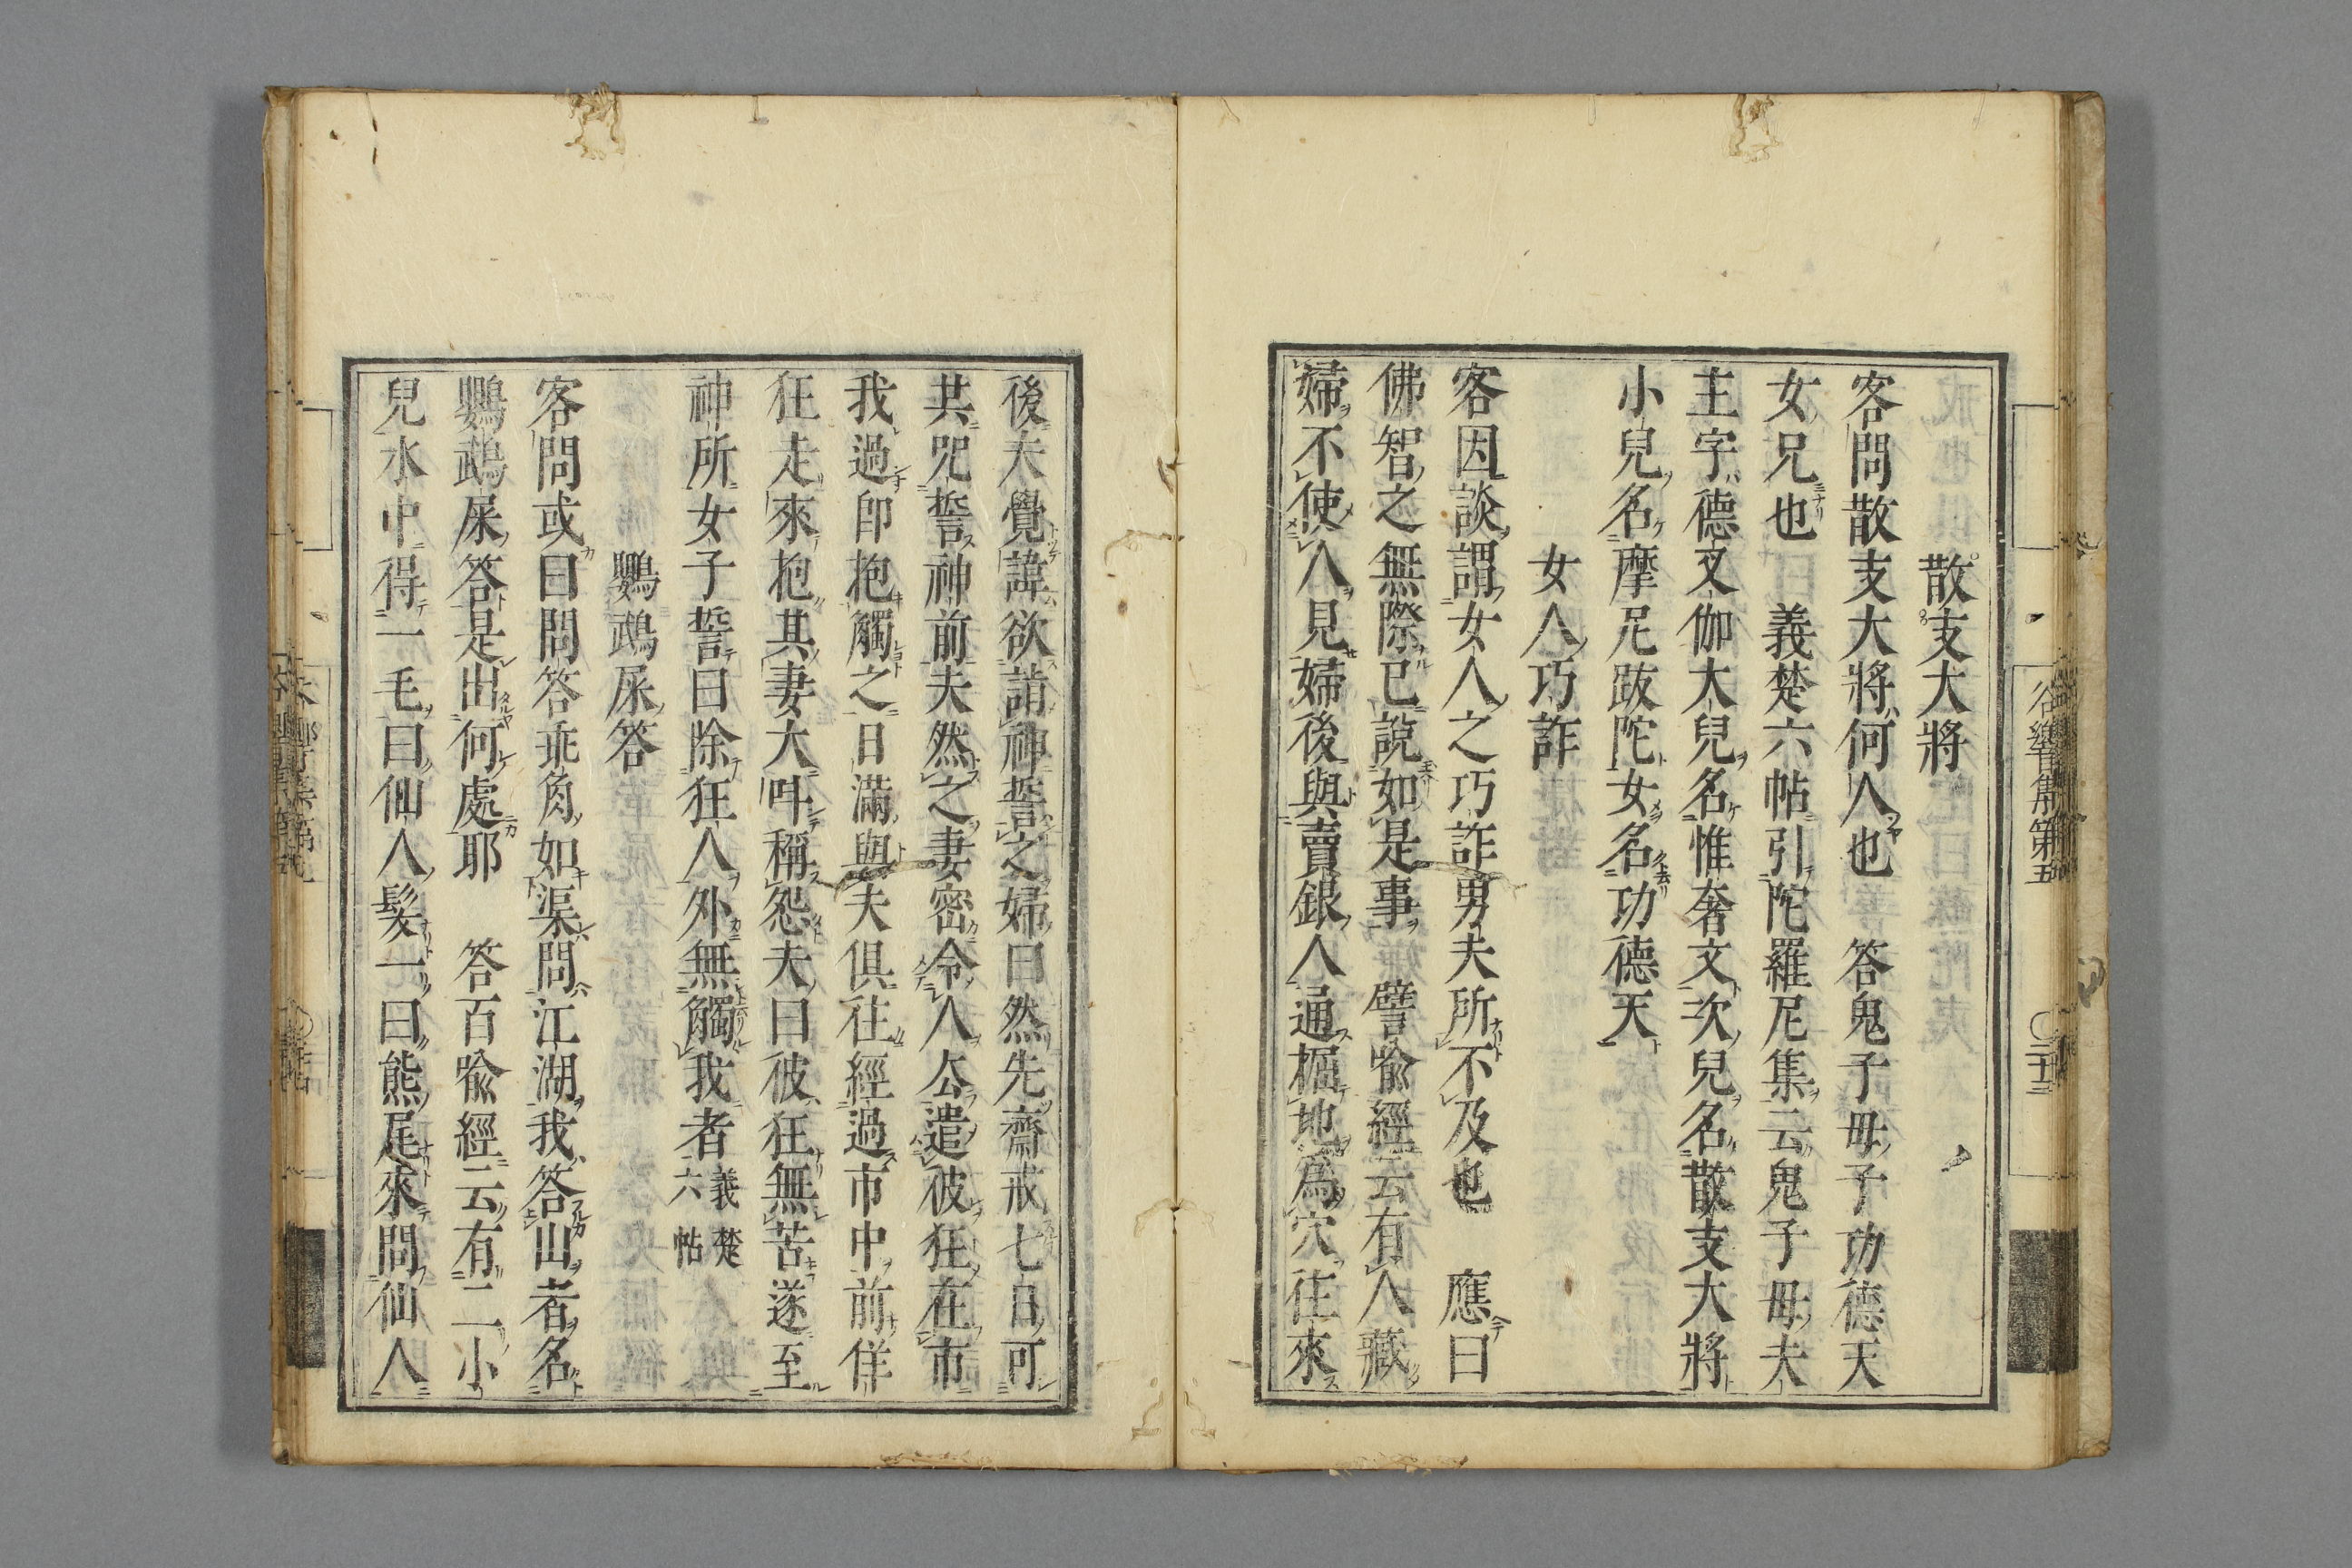 散支大將
客問散支大將何人也　答鬼子母子功德天
女兄也　義楚六帖引陀羅尼集云鬼子母夫
主字德叉伽大兒名惟奢文次兒名散支大將
小兒名摩尼跋陀女名功德天
女人巧詐
客因談謂女人之巧詐男夫所不及也　應曰
佛智之無際已說如是事　譬喩經云有人藏
婦不使人見婦後與賣銀人通掘地爲穴往來
後夫覺諱欲諸神誓之婦曰然先齋戒七日可
共咒誓神前夫然之妻密令人公遣彼狂在市
我過卽抱觸之日滿與夫俱往經過市中前佯
狂走來抱其妻大呌稱怨夫曰彼狂無苦遂至
神所女子誓曰除狂人外無觸我者義楚六帖
鸚鵡屎答
客問或曰問答乖角如渠問江湖我答山者名
鸚鵡屎答是出何處耶　答百喩經云有二小
兒水中得一毛曰仙人髮一曰熊尾來問仙人
谷響集第五
〇二十三